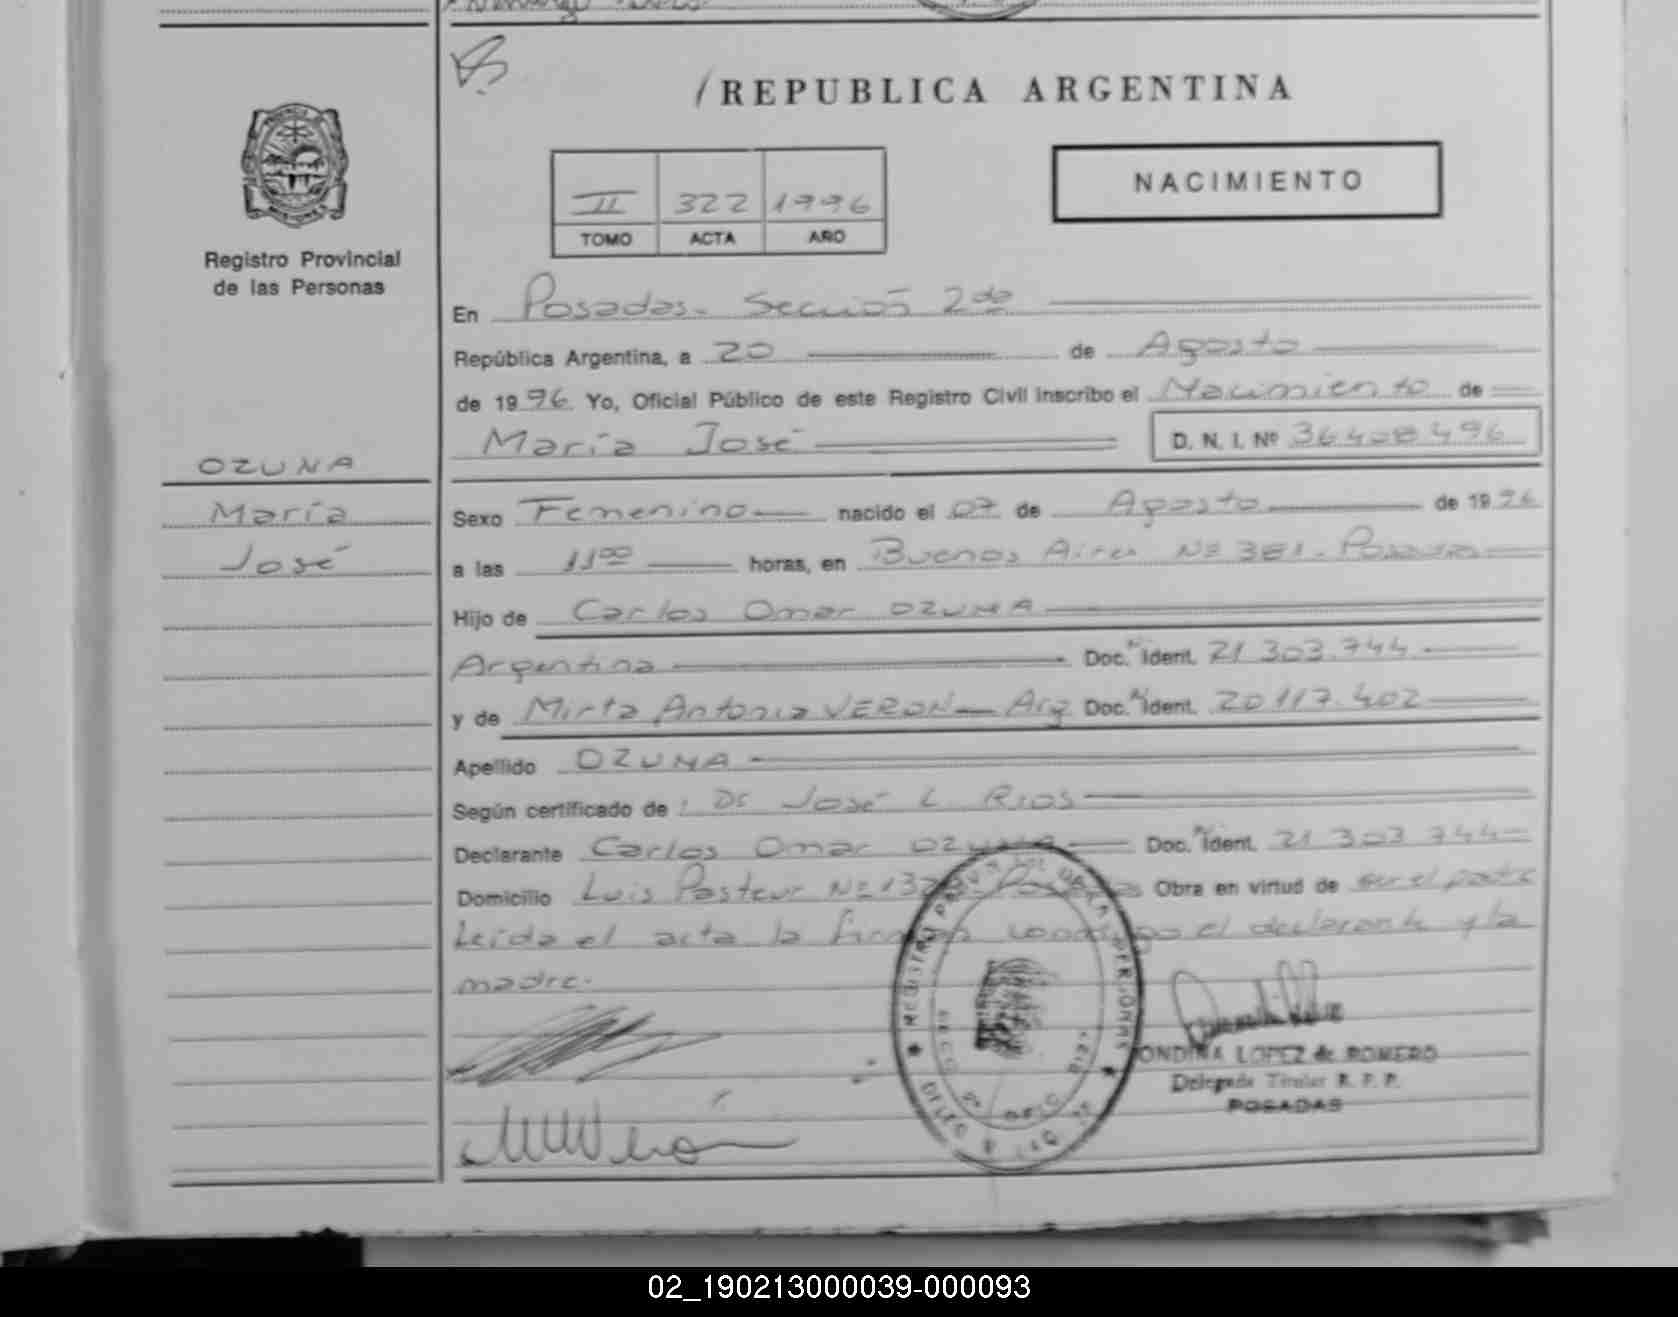 REPUBLICA ARGENTINA
NACIMIENTO
II 322 1996
TOMO ACTA AÑO
Registro Provincial
de las Personas
En Posadas - Sección 2da
República Argentina, a 20 de Agosto
de 1996 Yo, Oficial Público de este Registro Civil inscribo el Nacimiento de
María José D. N. I. Nº 36408496
OZUNA
María
José
Sexo Femenino nacido el 07 de Agosto de 1996
a las 11 00 horas, en Buenos Aires Nº 381 - Posadas
Hijo de Carlos Omar OZUNA
Argentina Doc. Ident. 21 303.744
y de Mirta Antonia VERON Arg Doc. Ident. 20 117.402
Apellido OZUNA
Según certificado de : Dr José L Rios
Declarante Carlos Omar OZUNA Doc. Ident. 21 303 744
Domicilio Luis Pasteur Nº Posadas Obra en virtud de ser el padre
Leída el acta la firman conmigo el declarante y la
madre.
ONDINA LOPEZ de ROMERO
Delegada Titular R. P. P.
POSADAS
02_190213000039-000093